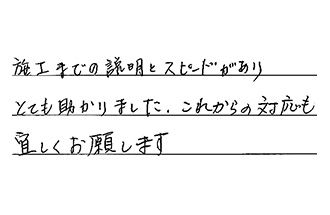 施工までの説明とスピードがあり
とても助かりました．これからの対応も
宜しくお願します